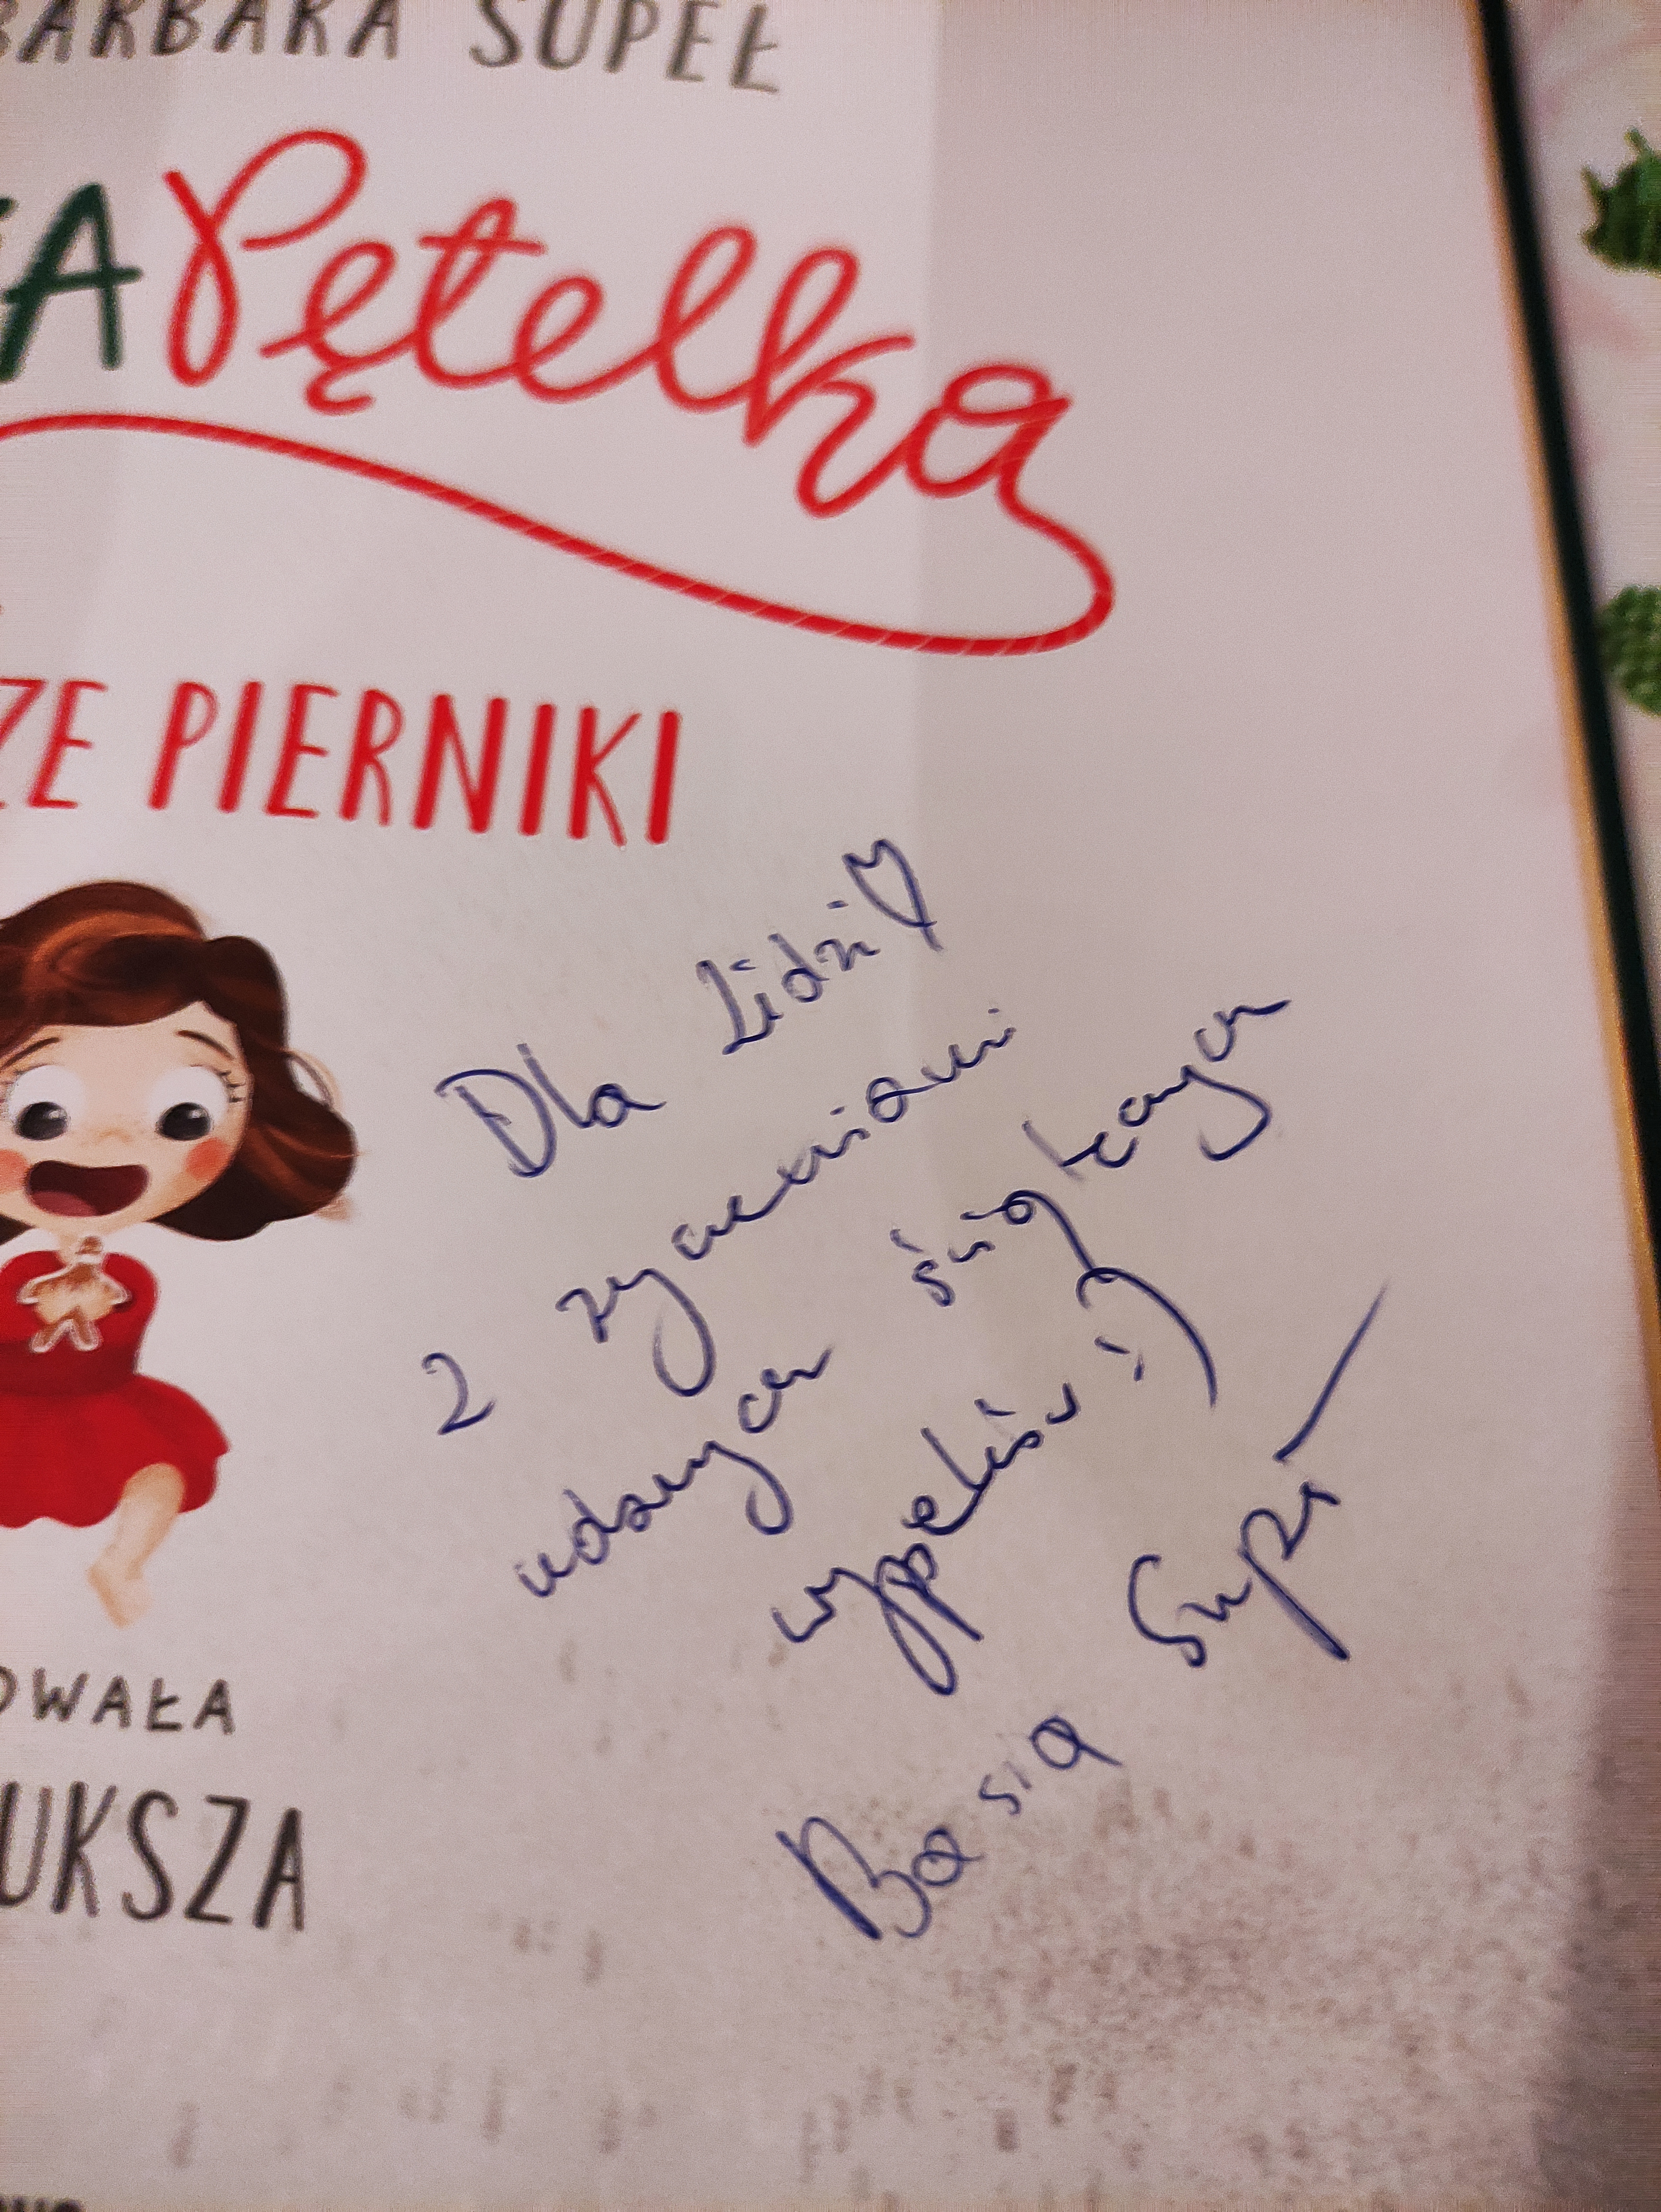 BARBARA SUPEŁ
A Pętelka
ZE PIERNIKI
Dla Lidzi ♡
z życzeniami
udanych świątecznych
wypieków :)
Basia Supeł
OWAŁA
UKSZA